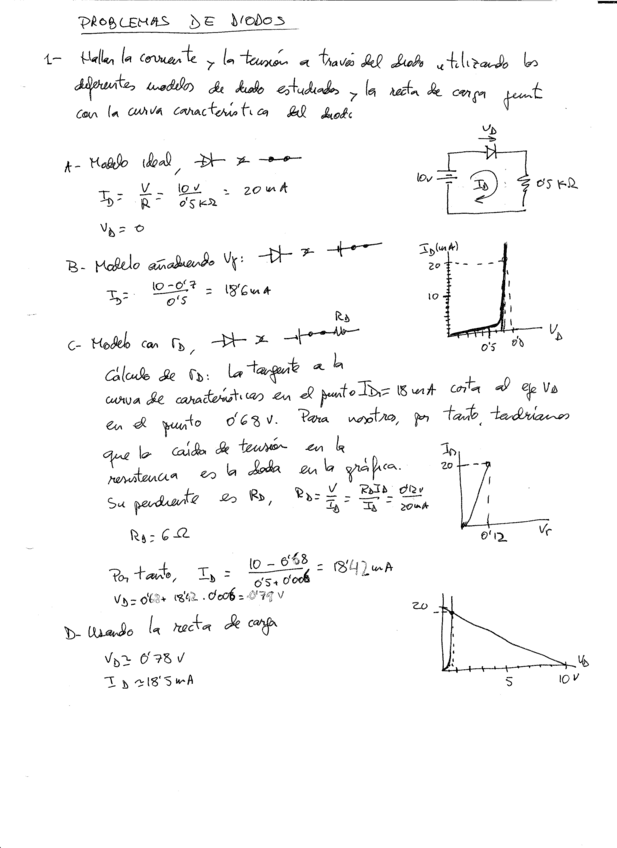 PROBLEMAS DE DIODOS
1- Hallar la corriente y la tensión a través del diodo utilizando los
diferentes modelos de diodo estudiados y la recta de carga junt
con la curva característica del diodo
A- Modelo ideal,
I_D = V/R = 10V/0'5KΩ = 20mA
V_D = 0
V_D
10V
I_D
0'5 KΩ
B- Modelo añadiendo Vγ:
I_D = (10-0'7)/0'5 = 18'6mA
I_D(mA)
20
10
0'5
0'8
V_D
C- Modelo con r_D,
R_D
Cálculo de r_D: La tangente a la
curva de características en el punto I_D = 18 mA corta al eje V_D
en el punto 0'68 V. Para nosotros, por tanto, tendríamos
que la caída de tensión en la
resistencia es la dada en la gráfica.
Su pendiente es R_D, R_D = V/I_D = R_D I_D/I_D = 0'12V/20mA
R_D = 6 Ω
I_D
20
0'12
V_r
Por tanto, I_D = (10-0'68)/(0'5+0'006) = 18'42mA
V_D = 0'68 + 18'42 . 0'006 = 0'79 V
D- Usando la recta de carga
V_D ≃ 0'78 V
I_D ≃ 18'5 mA
20
5
10 V
V_D